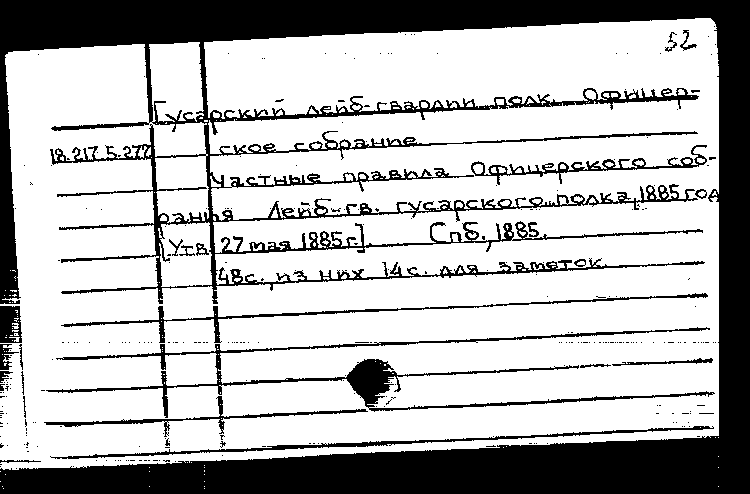 52
Гусарский лейб-гвардии полк. Офицер-
18.217.5.277 ское собрание
Частные правила Офицерского соб-
рания Лейб-гв. гусарского полка, 1885 год
[Утв. 27 мая 1885 г.]. Спб., 1885.
48 с., из них 14 с. для заметок.